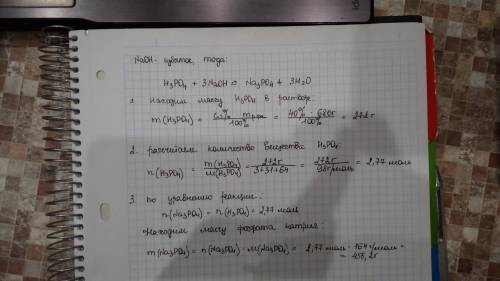 NaOH - избыток, тогда:
H₃PO₄ + 3NaOH = Na₃PO₄ + 3H₂O
1. Находим массу H₃PO₄ в растворе:
m(H₃PO₄) = ω% · m р-ра / 100% = 40% · 680г / 100% = 272 г
2. рассчитаем количество вещества H₃PO₄:
n(H₃PO₄) = m(H₃PO₄) / M(H₃PO₄) = 272г / 3+31+64 = 272г / 98г/моль = 2,77 моль
3. по уравнению реакции:
n(Na₃PO₄) = n(H₃PO₄) = 2,77 моль
Находим массу фосфата натрия:
m(Na₃PO₄) = n(Na₃PO₄) · M(Na₃PO₄) = 2,77 моль · 164 г/моль =
= 458,2г